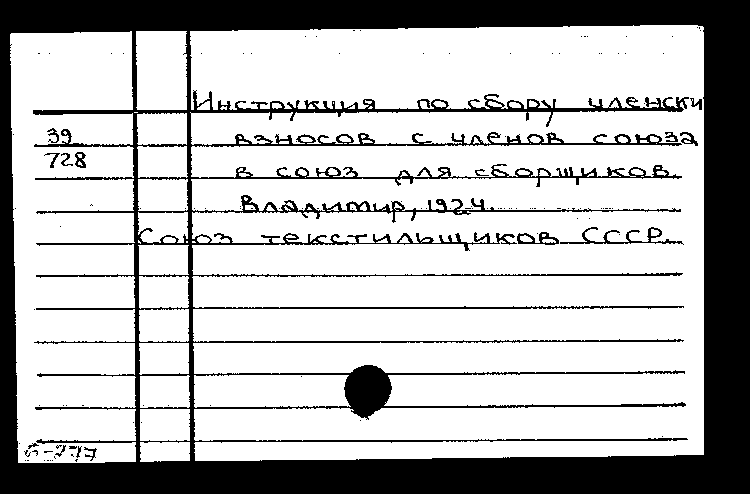 Инструкция по сбору членски
39 взносов с членов союза
728 в союз для сборщиков.
Владимир, 1924.
Союз текстильщиков СССР.
6-277